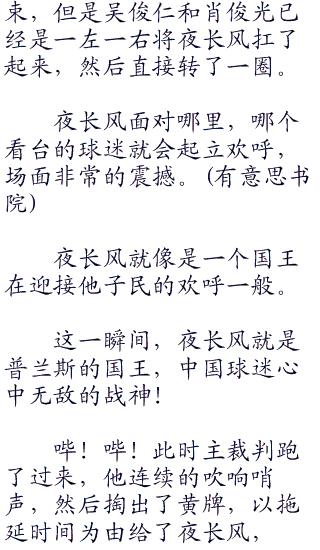 束，但是吴俊仁和肖俊光已
经是一左一右将夜长风扛了
起来，然后直接转了一圈。
夜长风面对哪里，哪个
看台的球迷就会起立欢呼，
场面非常的震撼。(有意思书
院)
夜长风就像是一个国王
在迎接他子民的欢呼一般。
这一瞬间，夜长风就是
普兰斯的国王，中国球迷心
中无敌的战神！
哔！哔！此时主裁判跑
了过来，他连续的吹响哨
声，然后掏出了黄牌，以拖
延时间为由给了夜长风，